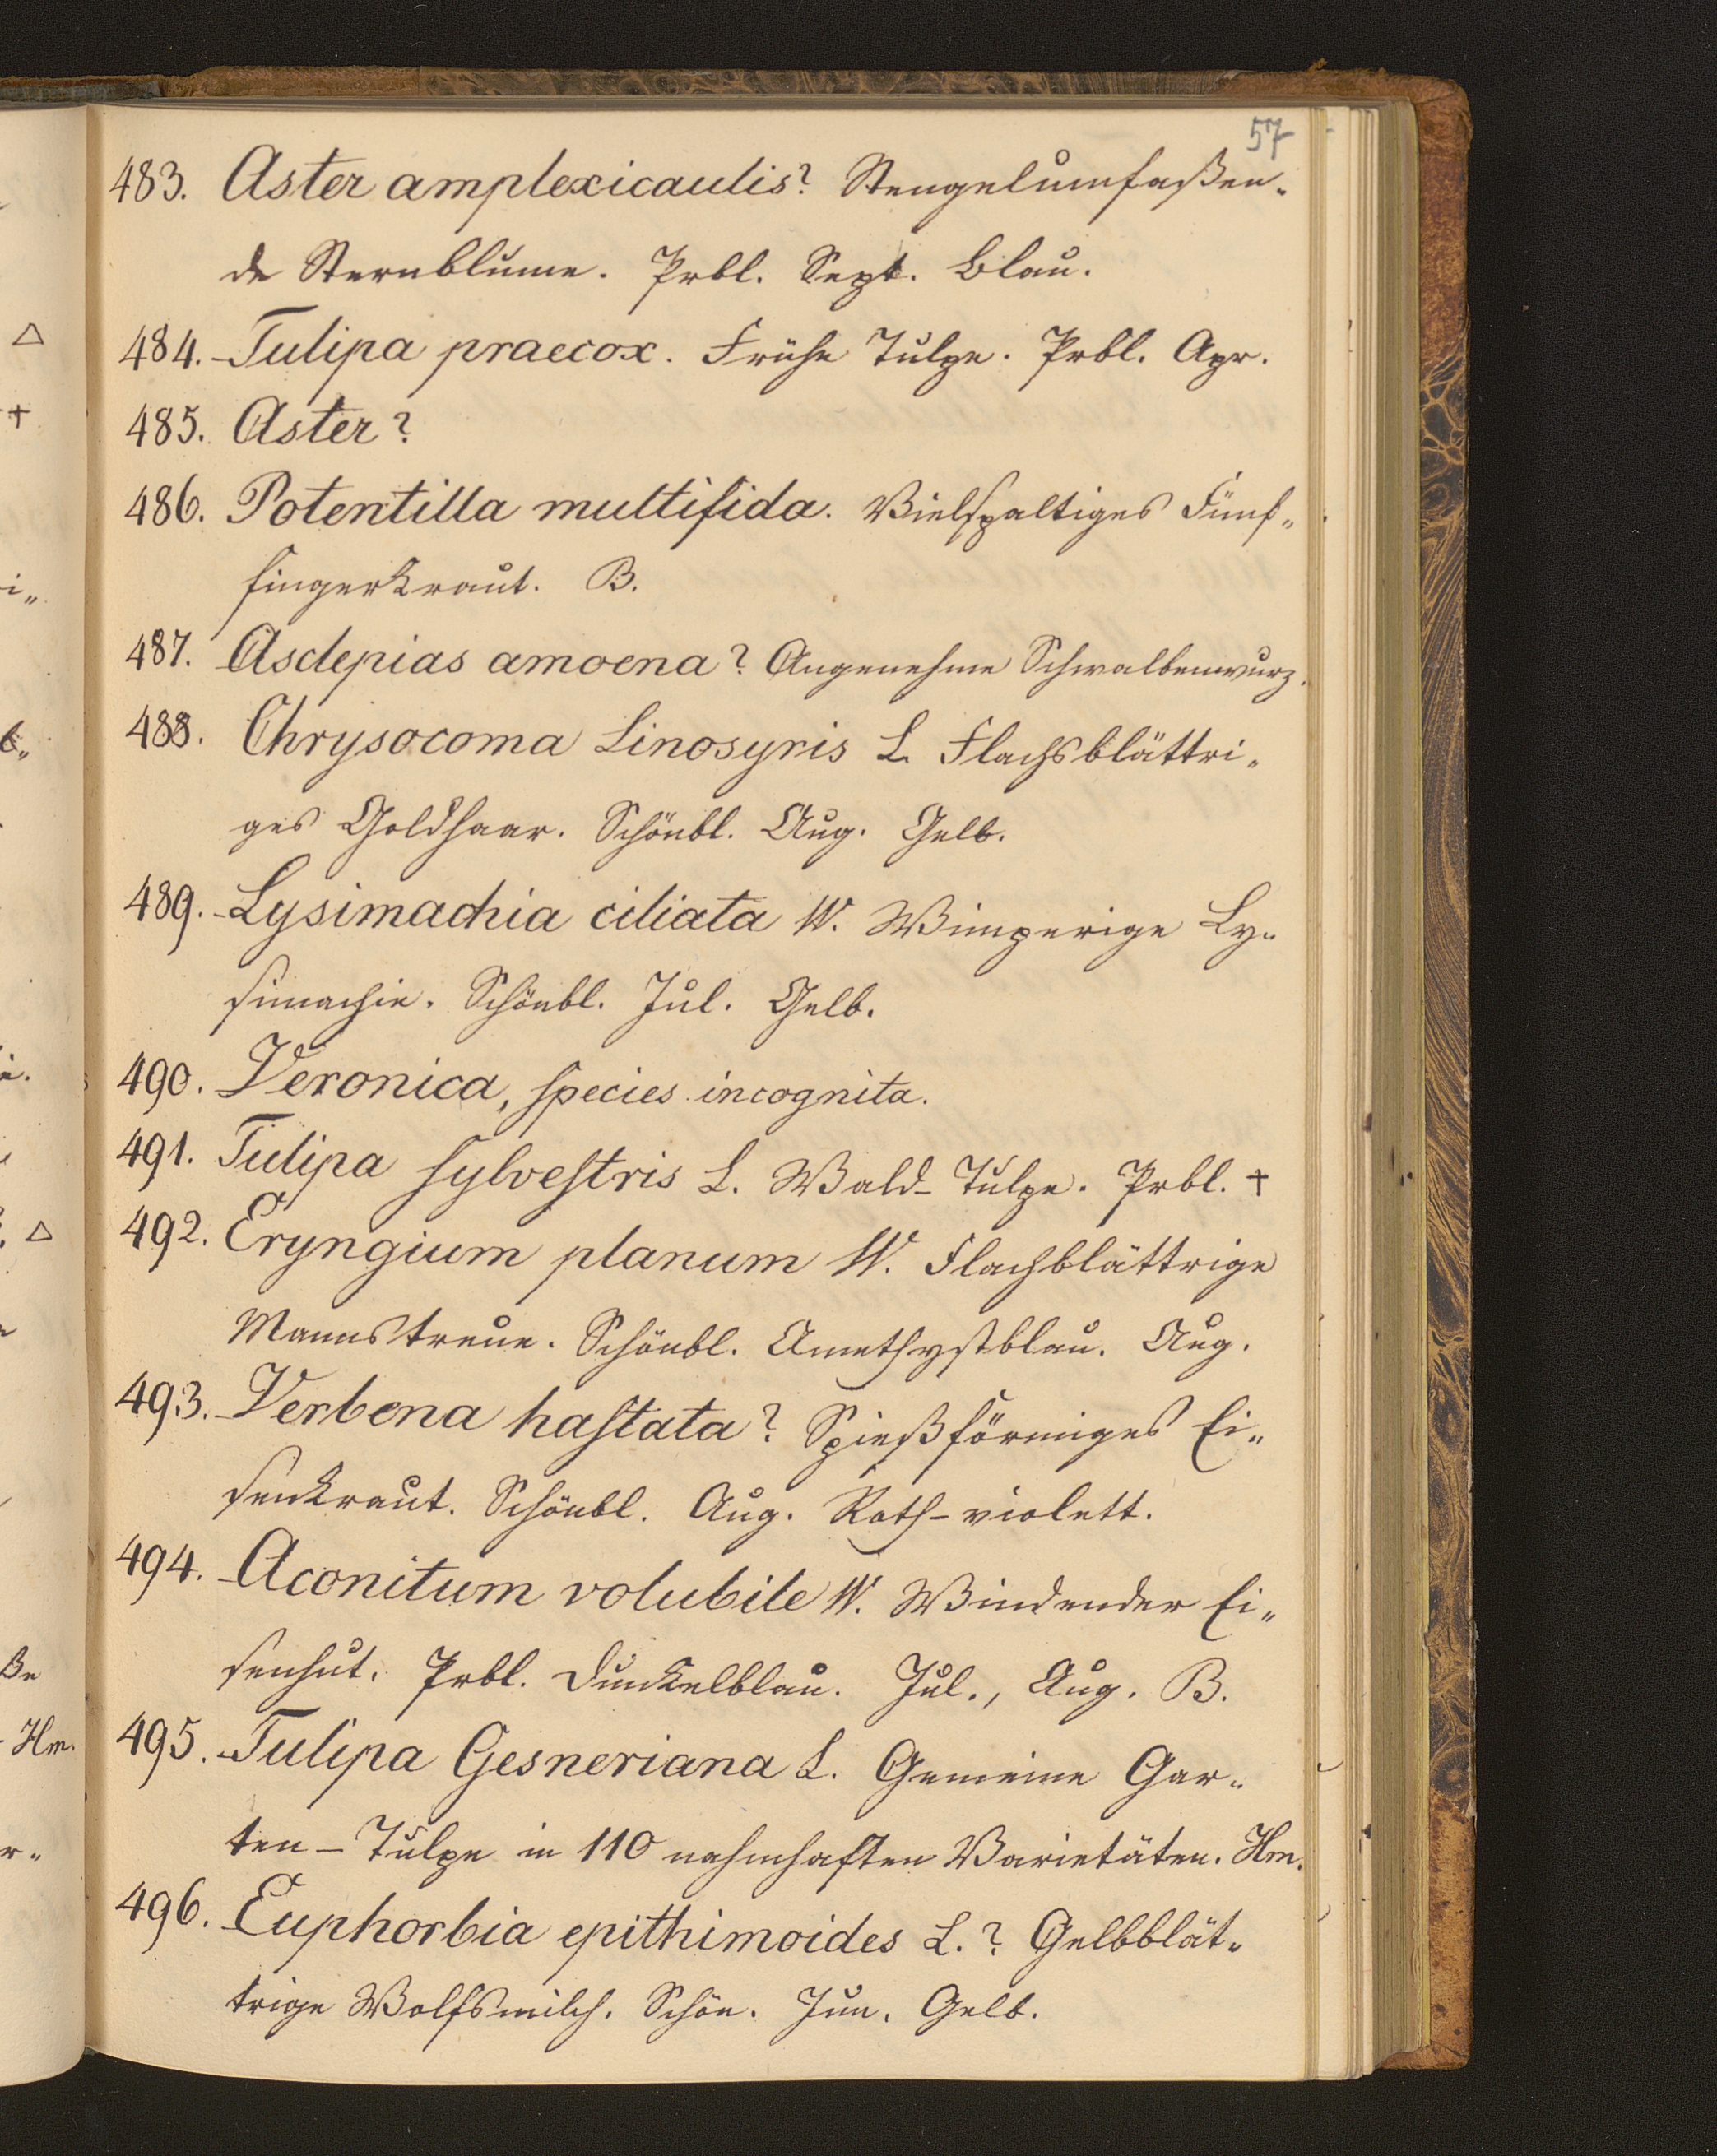 57
483. Aster amplexicaulis? Stengelumfaßen-
de Sternblume. Prbl. Sept. Blau.
484. Tulipa praecox. Frühe Tulpe. Prbl. Apr.
485. Aster?
486. Potentilla multifida. Vielspaltiges Fünf„
fingerkraut. B.
487. Asclepias amoena? Angenehme Schwalbenwurz.
488. Chrysocoma Linosyris L. Flachsblättri„
ges Goldhaar. Schönbl. Aug. Gelb.
489. Lysimachia ciliata W. Wimperige Ly„
simachie. Schönbl. Jul. Gelb.
490. Veronica, species incognita.
491. Tulipa sylvestris L. Wald-Tulpe. Prbl. †
492. Eryngium planum W. Flachblättrige
Mannstreue. Schönbl. Amethystblau. Aug.
493. Verbena hastata? Spießförmiges Ei„
senkraut. Schönbl. Aug. Roth-violett.
494. Aconitum volubile W. Windender Ei„
senhut. Prbl. Dunkelblau. Jul., Aug. B.
495. Tulipa Gesneriana L. Gemeine Gar„
ten-Tulpe in 110 nahmhaften Varietäten. Hm.
496. Euphorbia epithimoides L.? Gelbblät„
trige Wolfsmilch. Schön. Jun. Gelb.